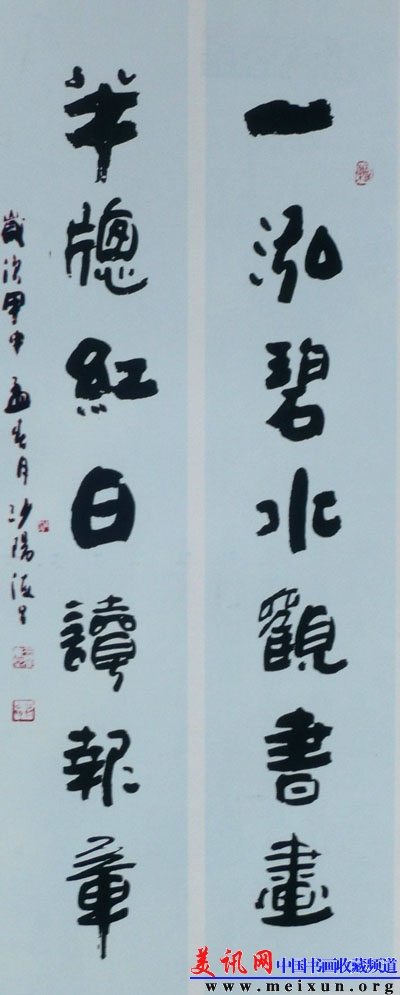 一泓碧水觀書畫
半牕紅日讀報章
歲次甲申孟春月沙陽
美讯网 中国书画收藏频道
www.meixun.org